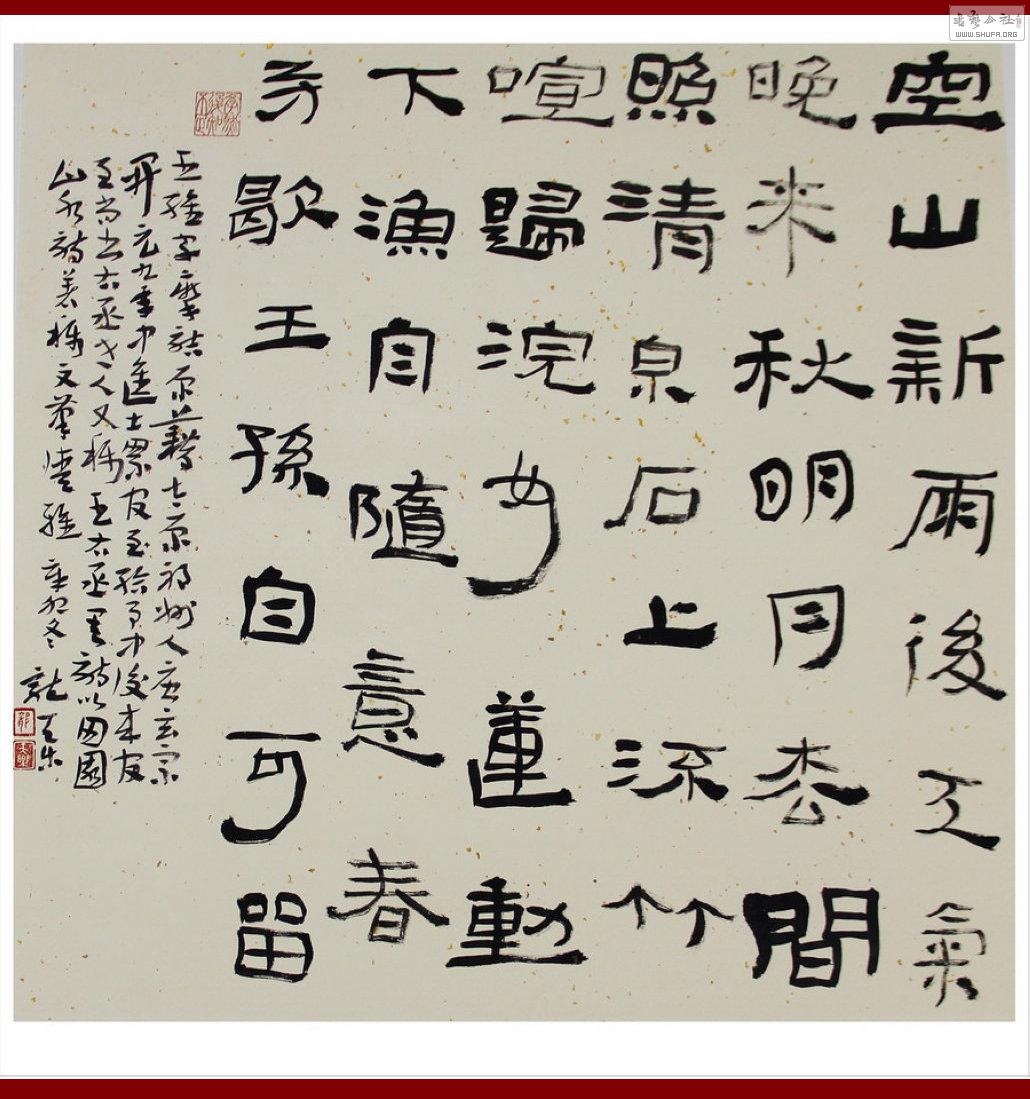 空山新雨後天氣
晚来秋明月枩間
照清泉石上流竹
喧歸浣女蓮動
下漁舟隨意春
芳歇王孫自可留
王維字摩詰原籍太原祁州人唐玄宗
開元九年中進士累官至給事中後来官
至尚书右丞世人又稱王右丞其詩以田園
山水詩著稱文筆優雅辛卯冬
书艺公社
WWW.SHUFA.ORG